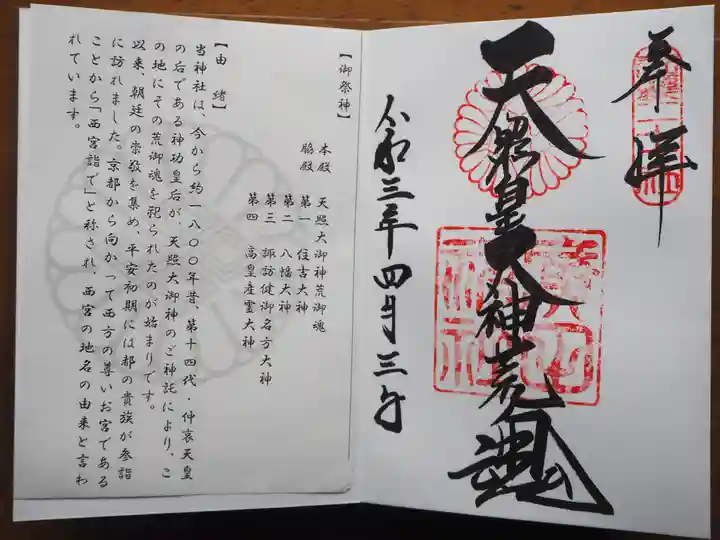 奉拝
天照皇大神荒魂
令和三年四月三日
【御祭神】
本殿 天照大御神荒御魂
脇殿 第一 住吉大神
第二 八幡大神
第三 諏訪健御名方大神
第四 高皇産霊大神
【由緒】
当神社は、今から約一八〇〇年昔、第十四代・仲哀天皇
の后である神功皇后が、天照大御神のご神託により、こ
の地にその荒御魂を祀られたのが始まりです。
以来、朝廷の崇敬を集め、平安初期には都の貴族が参詣
に訪れました。京都から向かって西方の尊いお宮である
ことから「西宮詣で」と称され、西宮の地名の由来と言わ
れています。